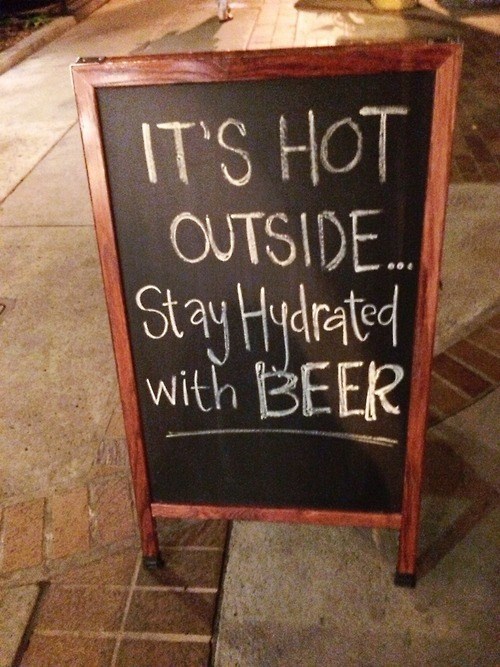 IT'S HOT
OUTSIDE...
Stay Hydrated
with BEER